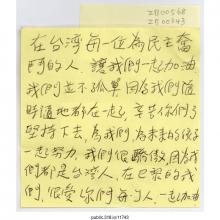 IB00568
IB00343
在台湾每一位為民主奮
鬥的人 讓我們一起加油
我們並不孤單 因為我們隨
時隨地都在一起，辛苦你們了
堅持下去，為我們未來的孩子
一起努力，我們很驕傲，因為
我們都是台湾人，在巴黎的我
們，很愛你們每个人，一起加油
public.318.io/11743